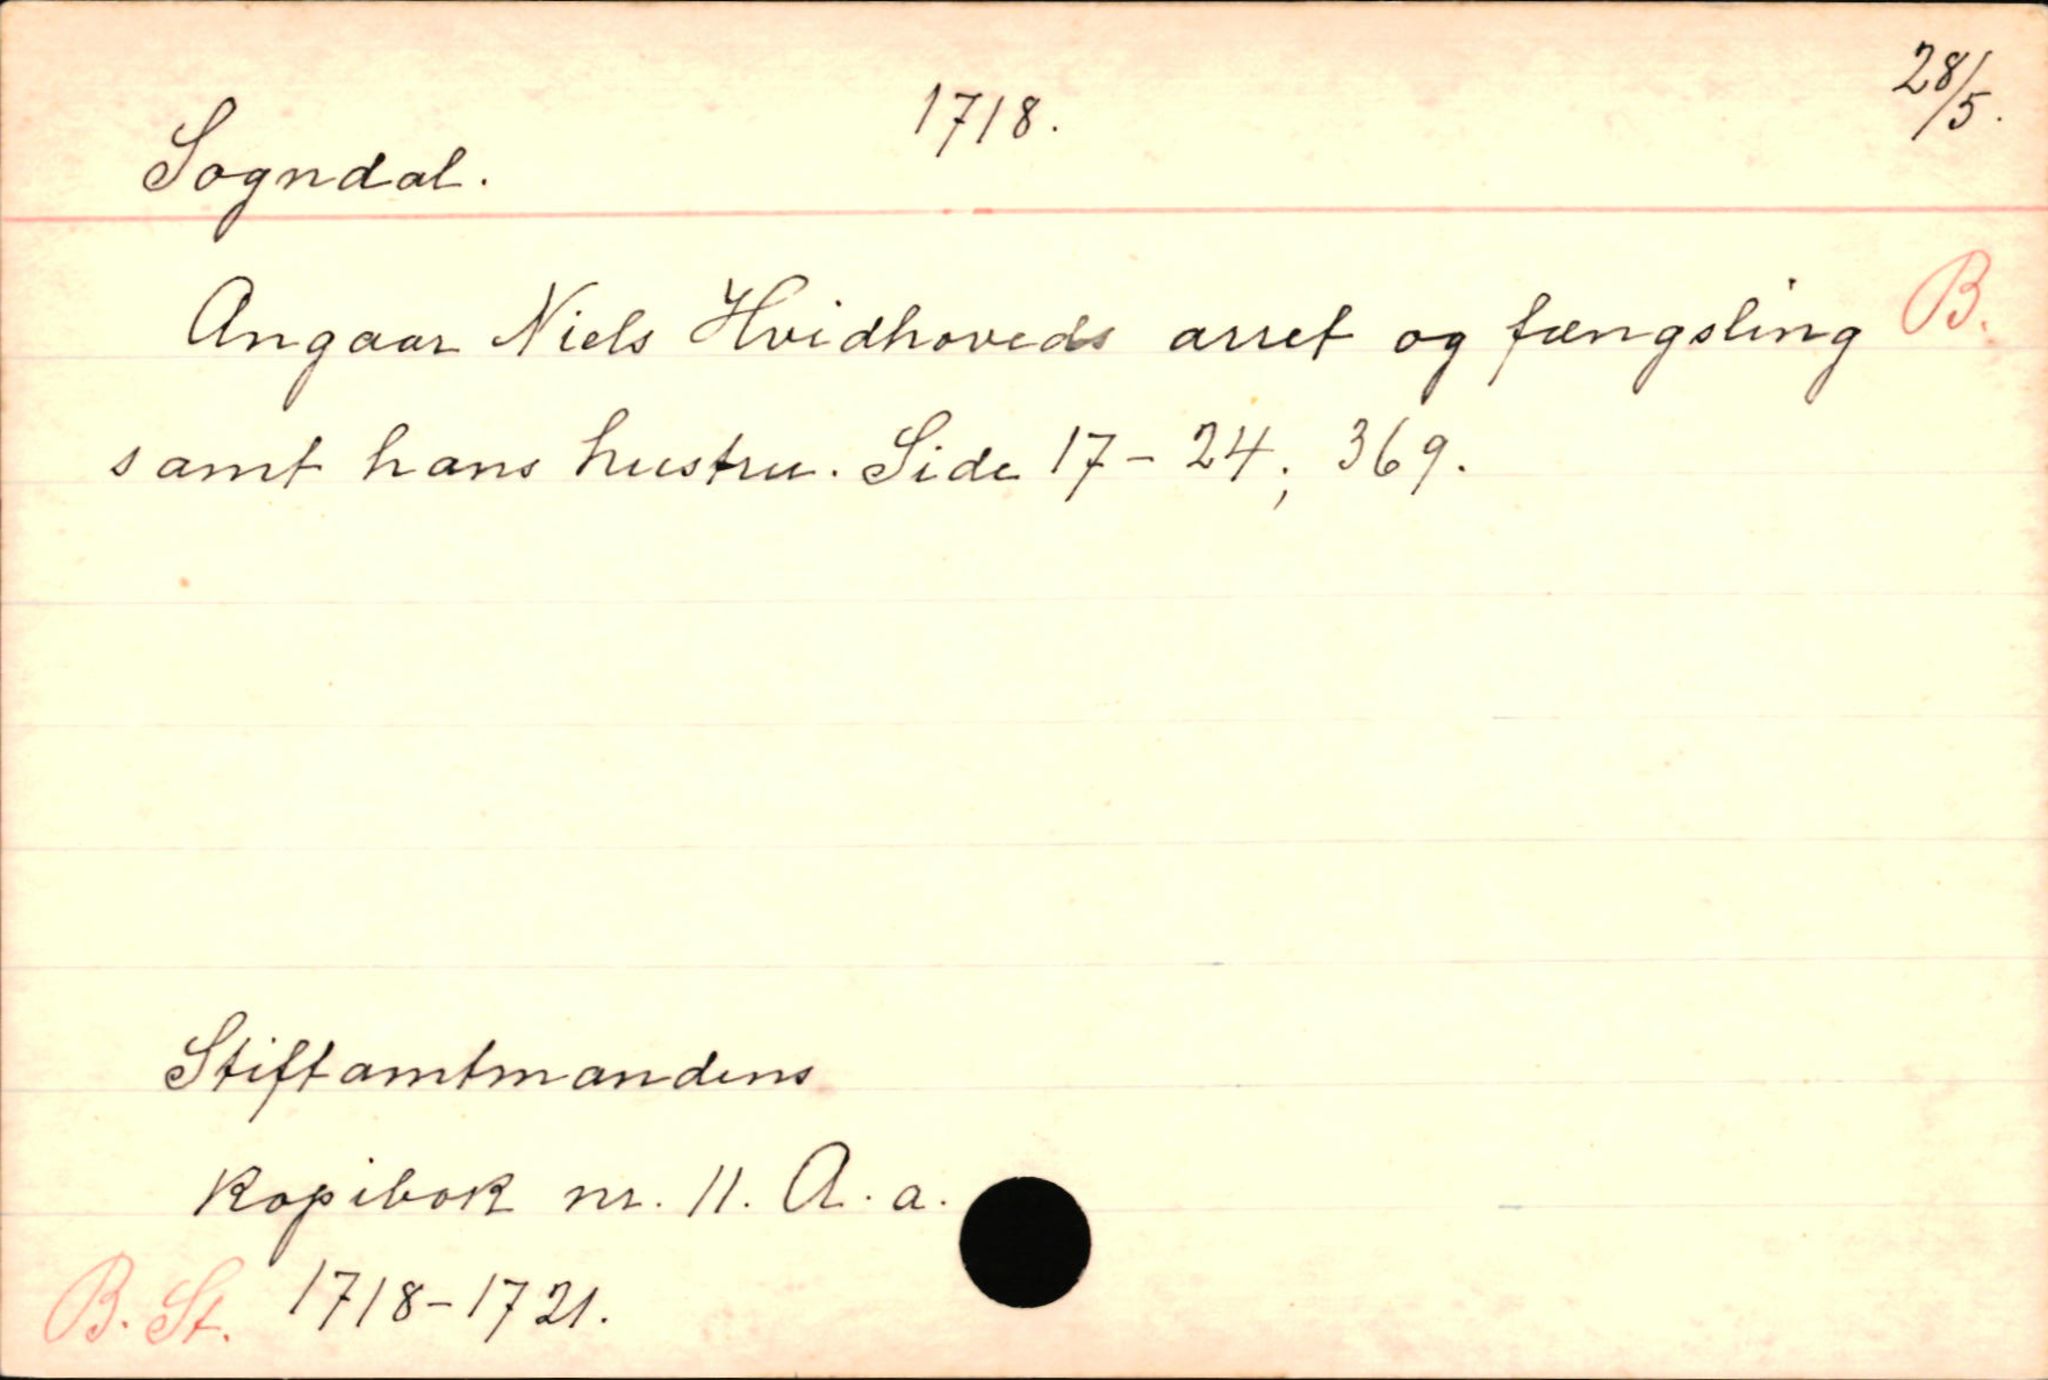 1718.
28/5.
Sogndal.
Angaar Niels Hvidhoveds arret og fængsling B.
samt hans hustru. Side 17-24; 369.
Stiftamtmandens
kopibok nr. 11. A. a.
B. St. 1718-1721.